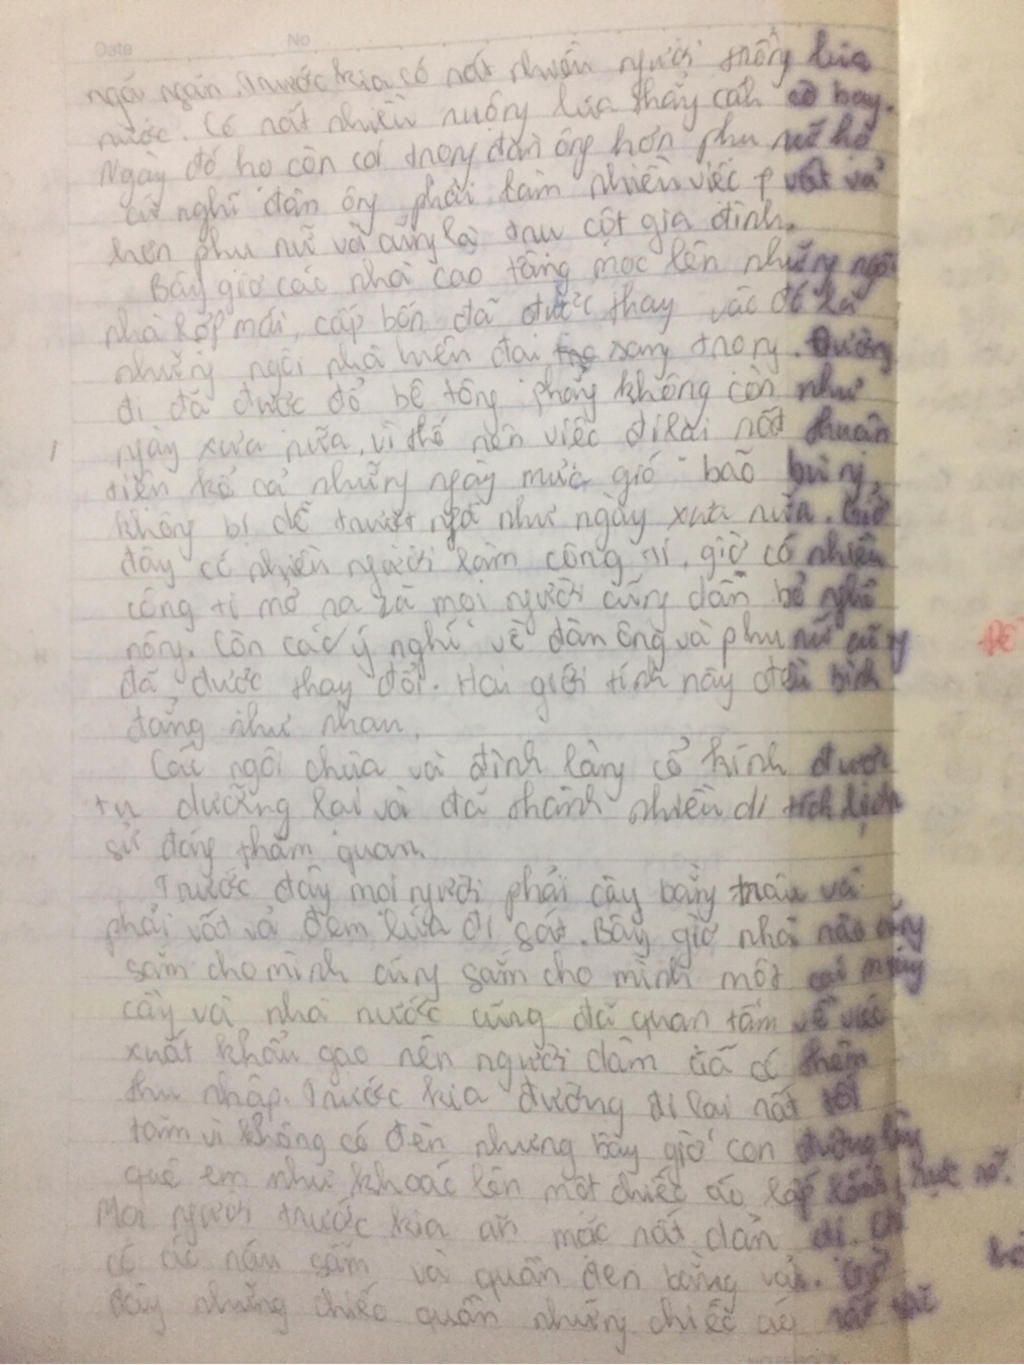 Date No
ngói ngán. Trước kia có nất nhiều người trồng lúa
nước. Có nất nhiều ruộng lúa thẳy cáh cò bay.
Ngày đó họ còn coi trọng đàn ông hơn phu nữ họ
cứ nghĩ đàn ông phải làm nhiều việc vất vả
hơn phu nữ và cũng là tru cột gia đình.
Bây giờ các nhà cao tầng mọc lên những ngôi
nhà lớp mái, cấp bốn đã được thay vào đó là
những ngôi nhà hiện đai sang trong. Đường
đi đã được đổ bê tông phẳng không còn như
ngày xưa nữa, vì thế nên việc đi lai nất thuân
tiên kể cả những ngày mưa gió bão bùng,
không bi dễ trươt ngã như ngày xưa nữa. Giờ
đây có nhiều người làm công ti, giờ có nhiều
công ti mở ra và moi người cũng dần bỏ nghề
nông. Còn các ý nghĩ về đàn ông và phu nữ cũng
đã được thay đổi. Hai giới tính này đều bình
đẳng như nhau.
Các ngôi chùa và đình làng cổ kính được
tu dưỡng lai và đã thành nhiều di tích lịch
sử đáng thăm quan.
Trước đây moi người phải cày bằng trâu và
phải vất vả đem lúa đi sát. Bây giờ nhà nào cũng
sắm cho mình cũng sắm cho mình môt cái máy
cày và nhà nước cũng đã quan tâm về việc
xuất khẩu gao nên người dâm đã có thêm
thu nhâp. Trước kia đường đi lai nất tối
tăm vì không có đèn nhưng bây giờ con đường làng
quê em như khoác lên môt chiếc áo lấp lánh, rưc rỡ.
Moi người trước kia ăn mặc nất dản di. Chỉ
có áo nâu sẫm và quần đen bằng vải. Giờ
đây những chiếc quần những chiếc áo